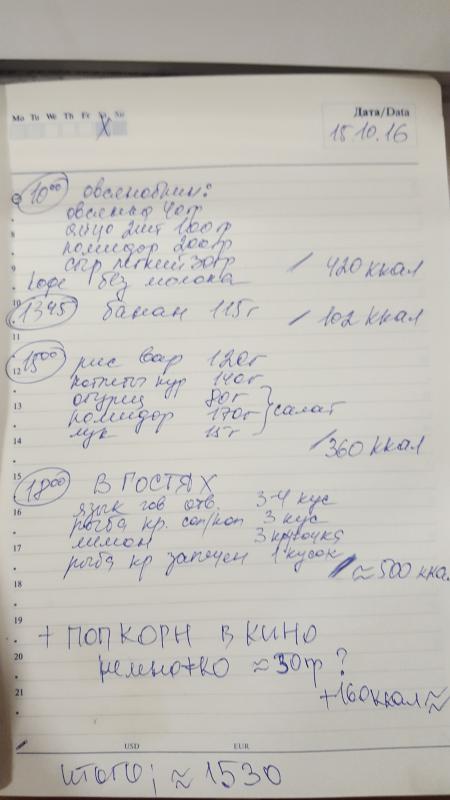 Mo Tu We Th Fr Sa Su
Дата/Data
15.10.16
10⁰⁰ овсяноблин:
8 овсянка 40гр
яйцо 2шт 100гр
помидор 200гр
9 сыр легкий 30гр / 420 ккал
кофе без молока
10
13 45 банан 115г / 102 ккал
11
12 15⁰⁰ рис вар 120г
котлеты кур 140г
13 огурец 80г
помидор 170г } салат
14 лук 15г / 360 ккал
15
18⁰⁰ В ГОСТЯХ
16 язык гов отв. 3-4 кус
рыба кр. сол/коп 3 кус
17 лимон 3 кружочка
рыба кр запечен 1 кусок / ≈ 500 ккал
18
19
+ ПОПКОРН В КИНО
20 немножко ≈ 30гр ?
21 +160ккал ≈
USD EUR
ИТОГО: ≈ 1530